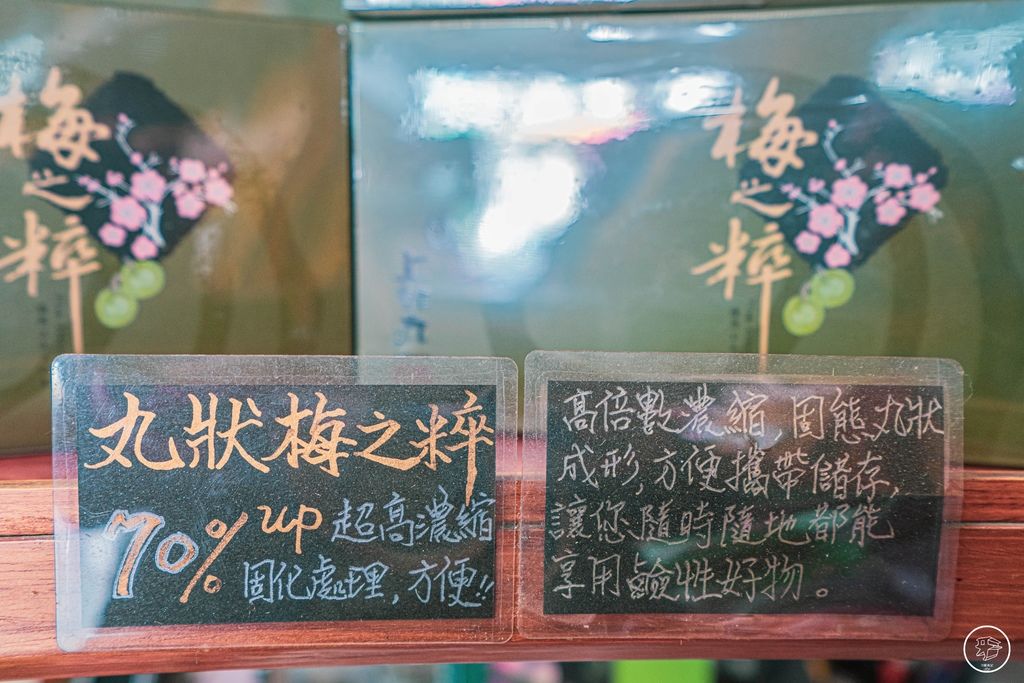 梅之粹
梅之粹
丸狀梅之粹
70% up 超高濃縮
固化處理,方便!!
高倍數濃縮,固態丸狀
成形,方便攜帶儲存,
讓您隨時隨地都能
享用鹼性好物。